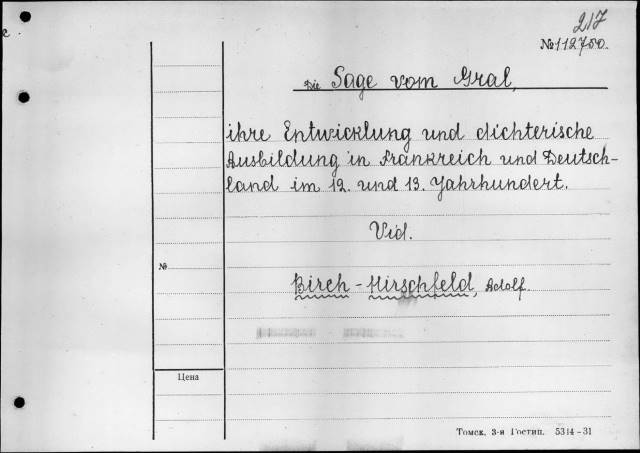 217
№112750.
Die Sage vom Gral,
ihre Entwicklung und dichterische
Ausbildung in Frankreich und Deutsch-
land im 12. und 13. Jahrhundert.
Vid.
№
Birch-Hirschfeld, Adolf.
Цена
Томск, 3-я Гостип. 5314-31